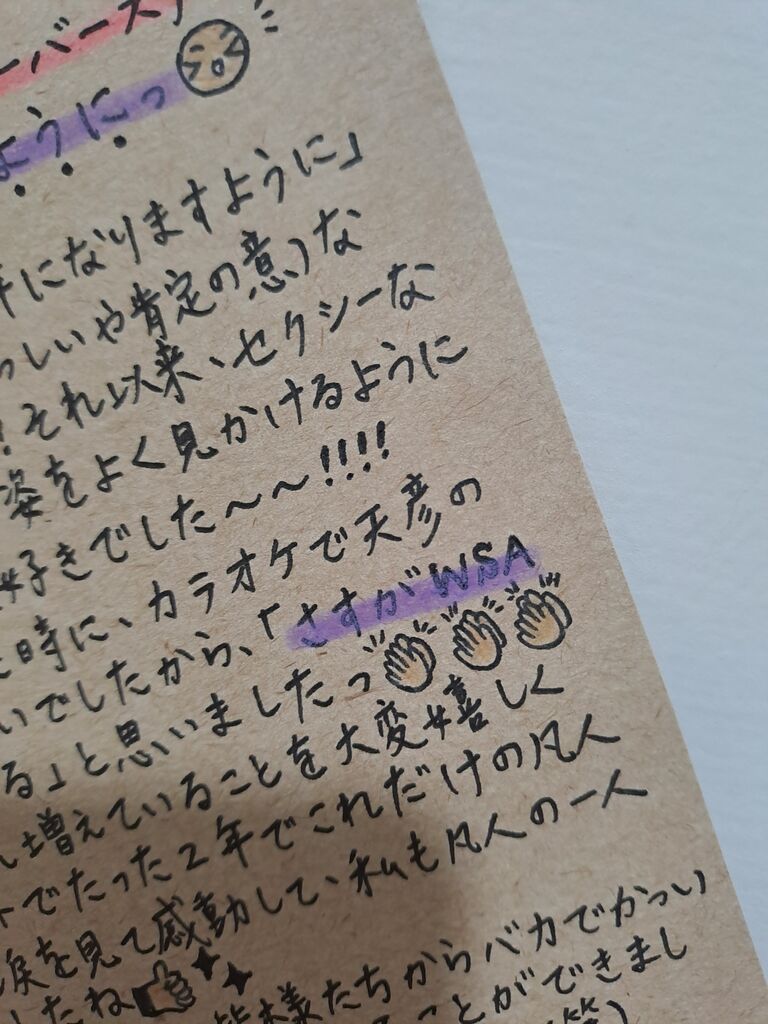 ーバース
ようにっ
になりますように」
っしいや肯定の意)な
!それ以来、セクシーな
姿をよく見かけるように
好きでした〜〜!!!!
時に、カラオケで天彦の
いでしたから、「さすがWSA
る」と思いましたっ
増えていることを大変嬉しく
でたった2年でこれだけの凡人
涙を見て感動して、私も凡人の一人
したね
皆様たちからバカでかっい
ことができまし
笑)